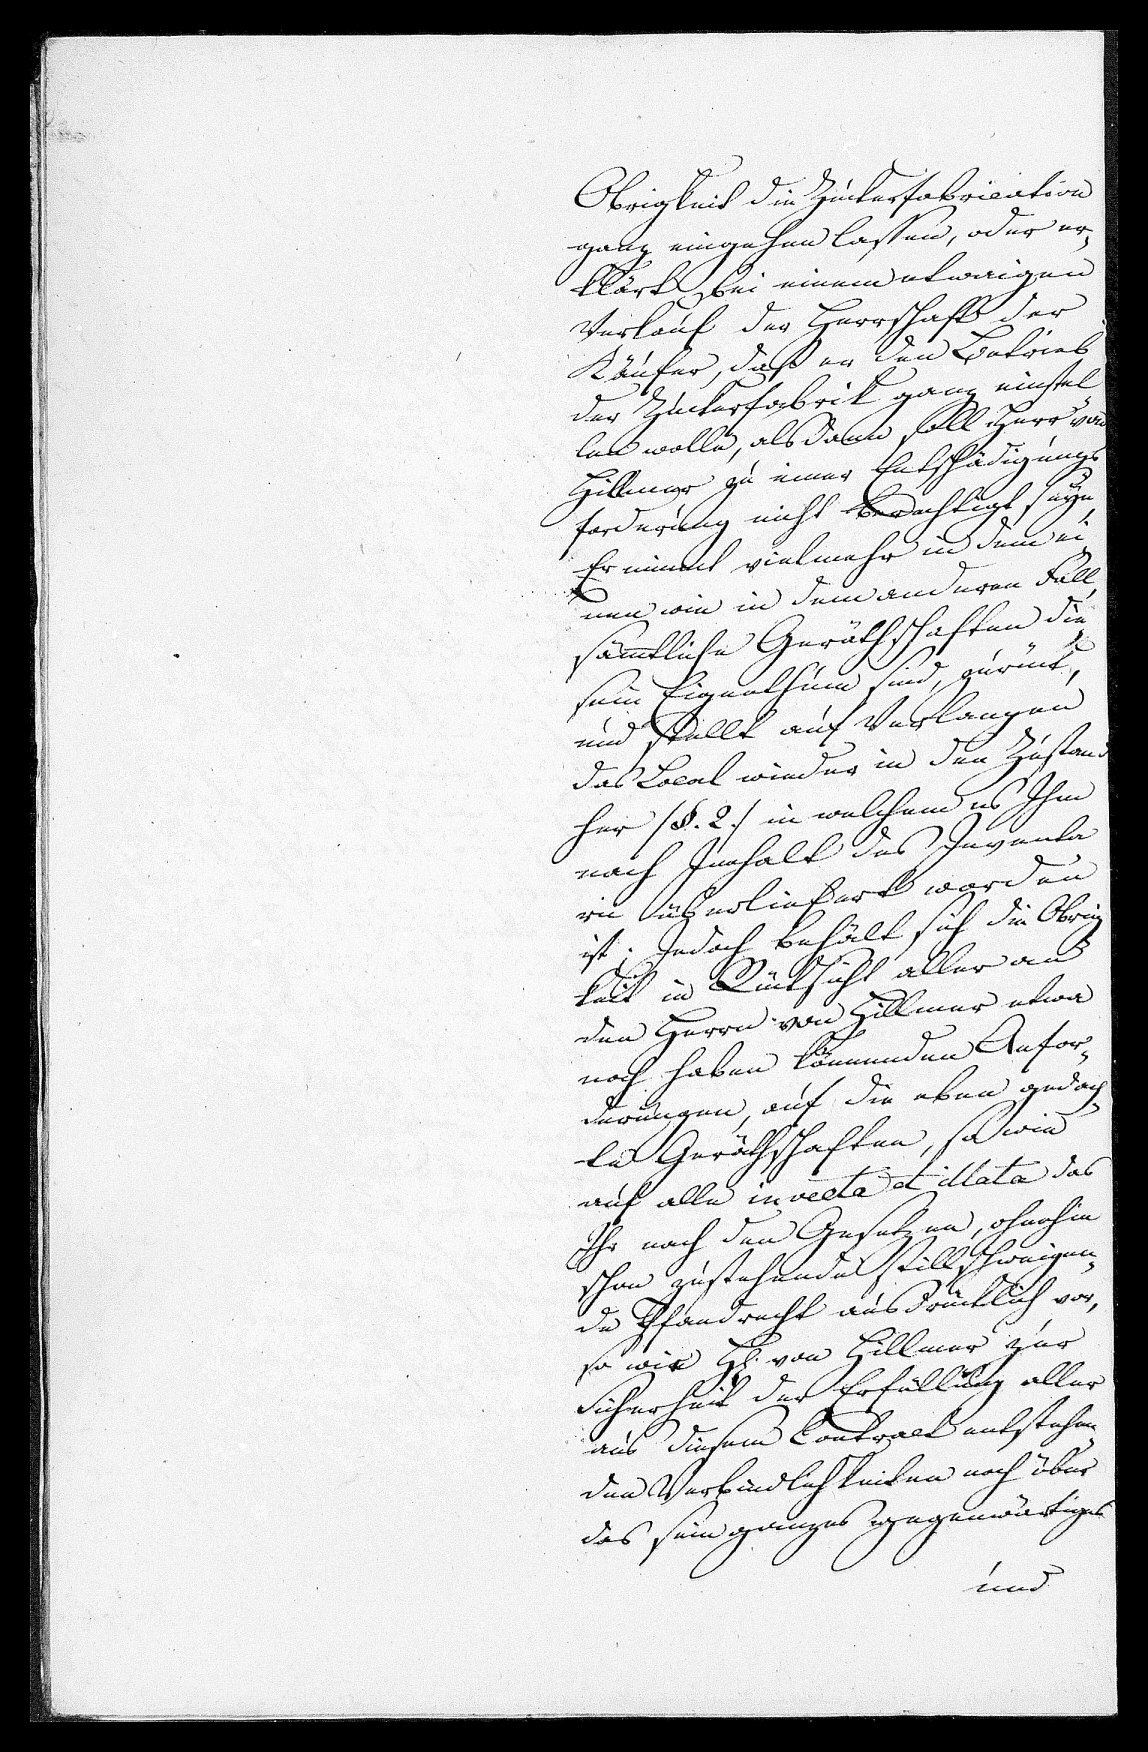 Obrigkeit die Zuckerfabrication
ganz eingehen lassen, oder er-
klärt bei einem etwaigen
Verkauf der Herrschaft der
Käufer, daß er den Betrieb
der Zuckerfabrik ganz einstel
len wolle, alsdann soll Herr von
Hillmer zu einer Entschädigungs
forderung nicht berechtigt seyn,
Er nimmt vielmehr in dem ei
nen wie in dem anderen Fall,
sämtliche Geräthschaften die
sein Eigenthum sind, zurück,
und stellt auf Verlangen
das Local wieder in den Zustand
her /§. 2./ in welchem es Ihm
nach Innhalt des Inventa
rii überliefert worden
ist; Jedoch behält sich die Obrig
keit in Rücksicht aller an
den Herrn von Hillmer etwa
noch haben könnenden Anfor-
derungen, auf die eben gedach
te Geräthschaften, so wie
auf alle invecta et illata das
Ihr nach den Gesetzen, ohnehin
schon zustehende stillschweigen-
de Pfandrecht ausdrücklich vor,
so wie H. von Hillmer zur
Sicherheit der Erfüllung aller
aus diesem Contract entstehen-
den Verbindlichkeiten noch über
das sein ganzes gegenwärtiges
und